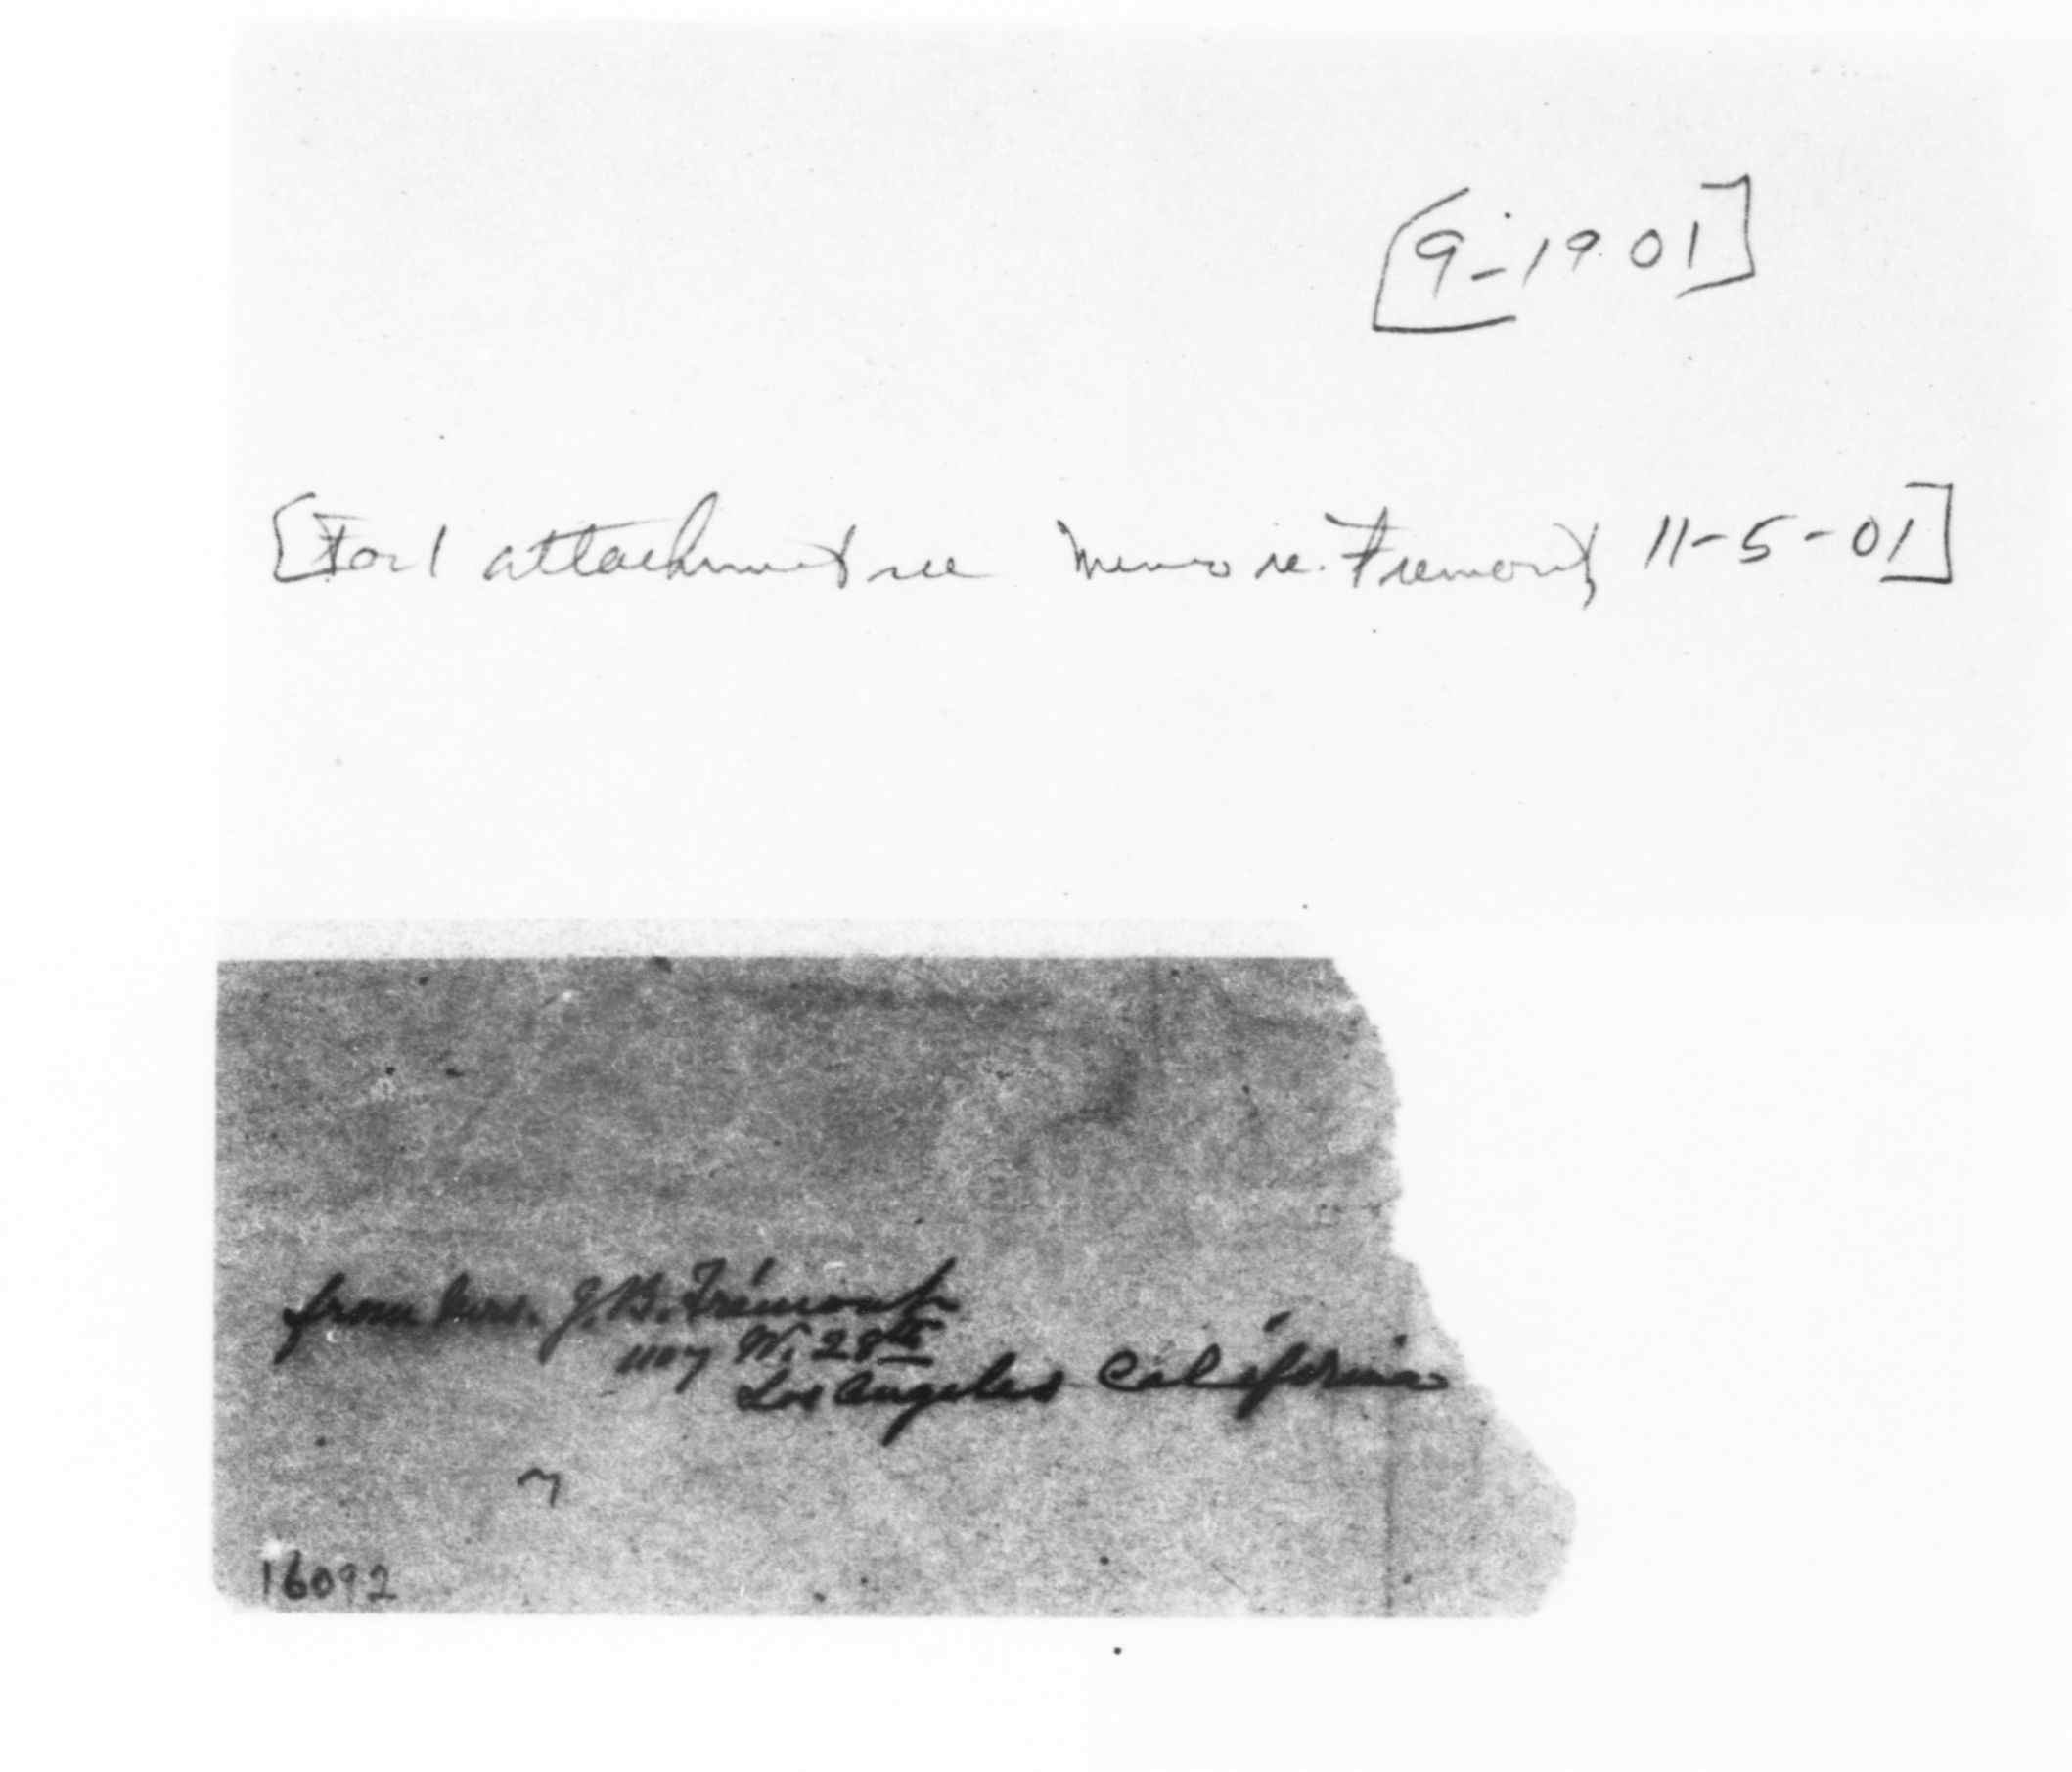 [9-19 01]
[For 1 attachment see Memo re. Fremont, 11-5-01]
from Mrs. J. B. Frémont
1107 W. 28th
Los Angeles California
16092